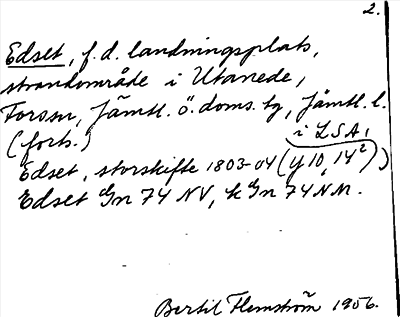 2.
Edset, f.d. landningsplats,
strandområde i Utanede,
Forssn, Jämtl. ö. doms. tg, Jämtl. l.
(forts.)
i LSA,
Edset, storskifte 1803-04 (y 10, 14²)
Edset Gn 74 NV, k Gn 74 NM.
Bertil Flemström 1956.